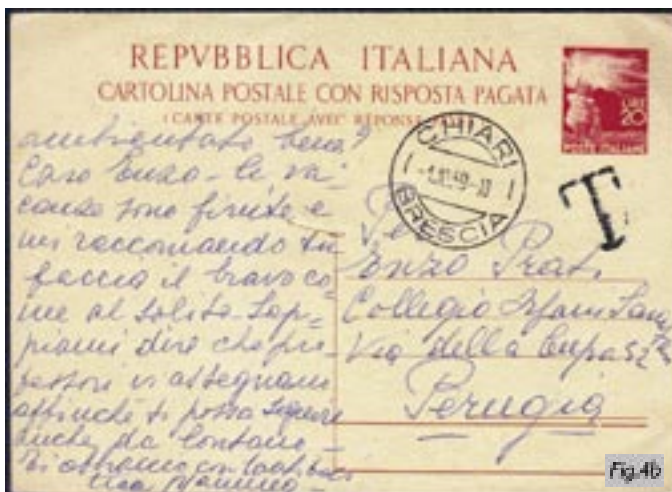 REPVBBLICA ITALIANA
CARTOLINA POSTALE CON RISPOSTA PAGATA
(CARTE POSTALE AVEC RÉPONSE
LIRE
20
POSTE ITALIANE
CHIARI
BRESCIA
T
bene?
Caro Enzo - le va-
canze sono finite e
mi raccomando tu
faccia il bravo co-
me al solito. Sap-
piami dire che pro-
fessori vi assegnano
affinché ti possa seguire
anche da lontano -
Ti abbraccio con tanti baci
tua Mammina -
Enzo Prati
Collegio
Via della Cupa
Perugia
Fig.4b